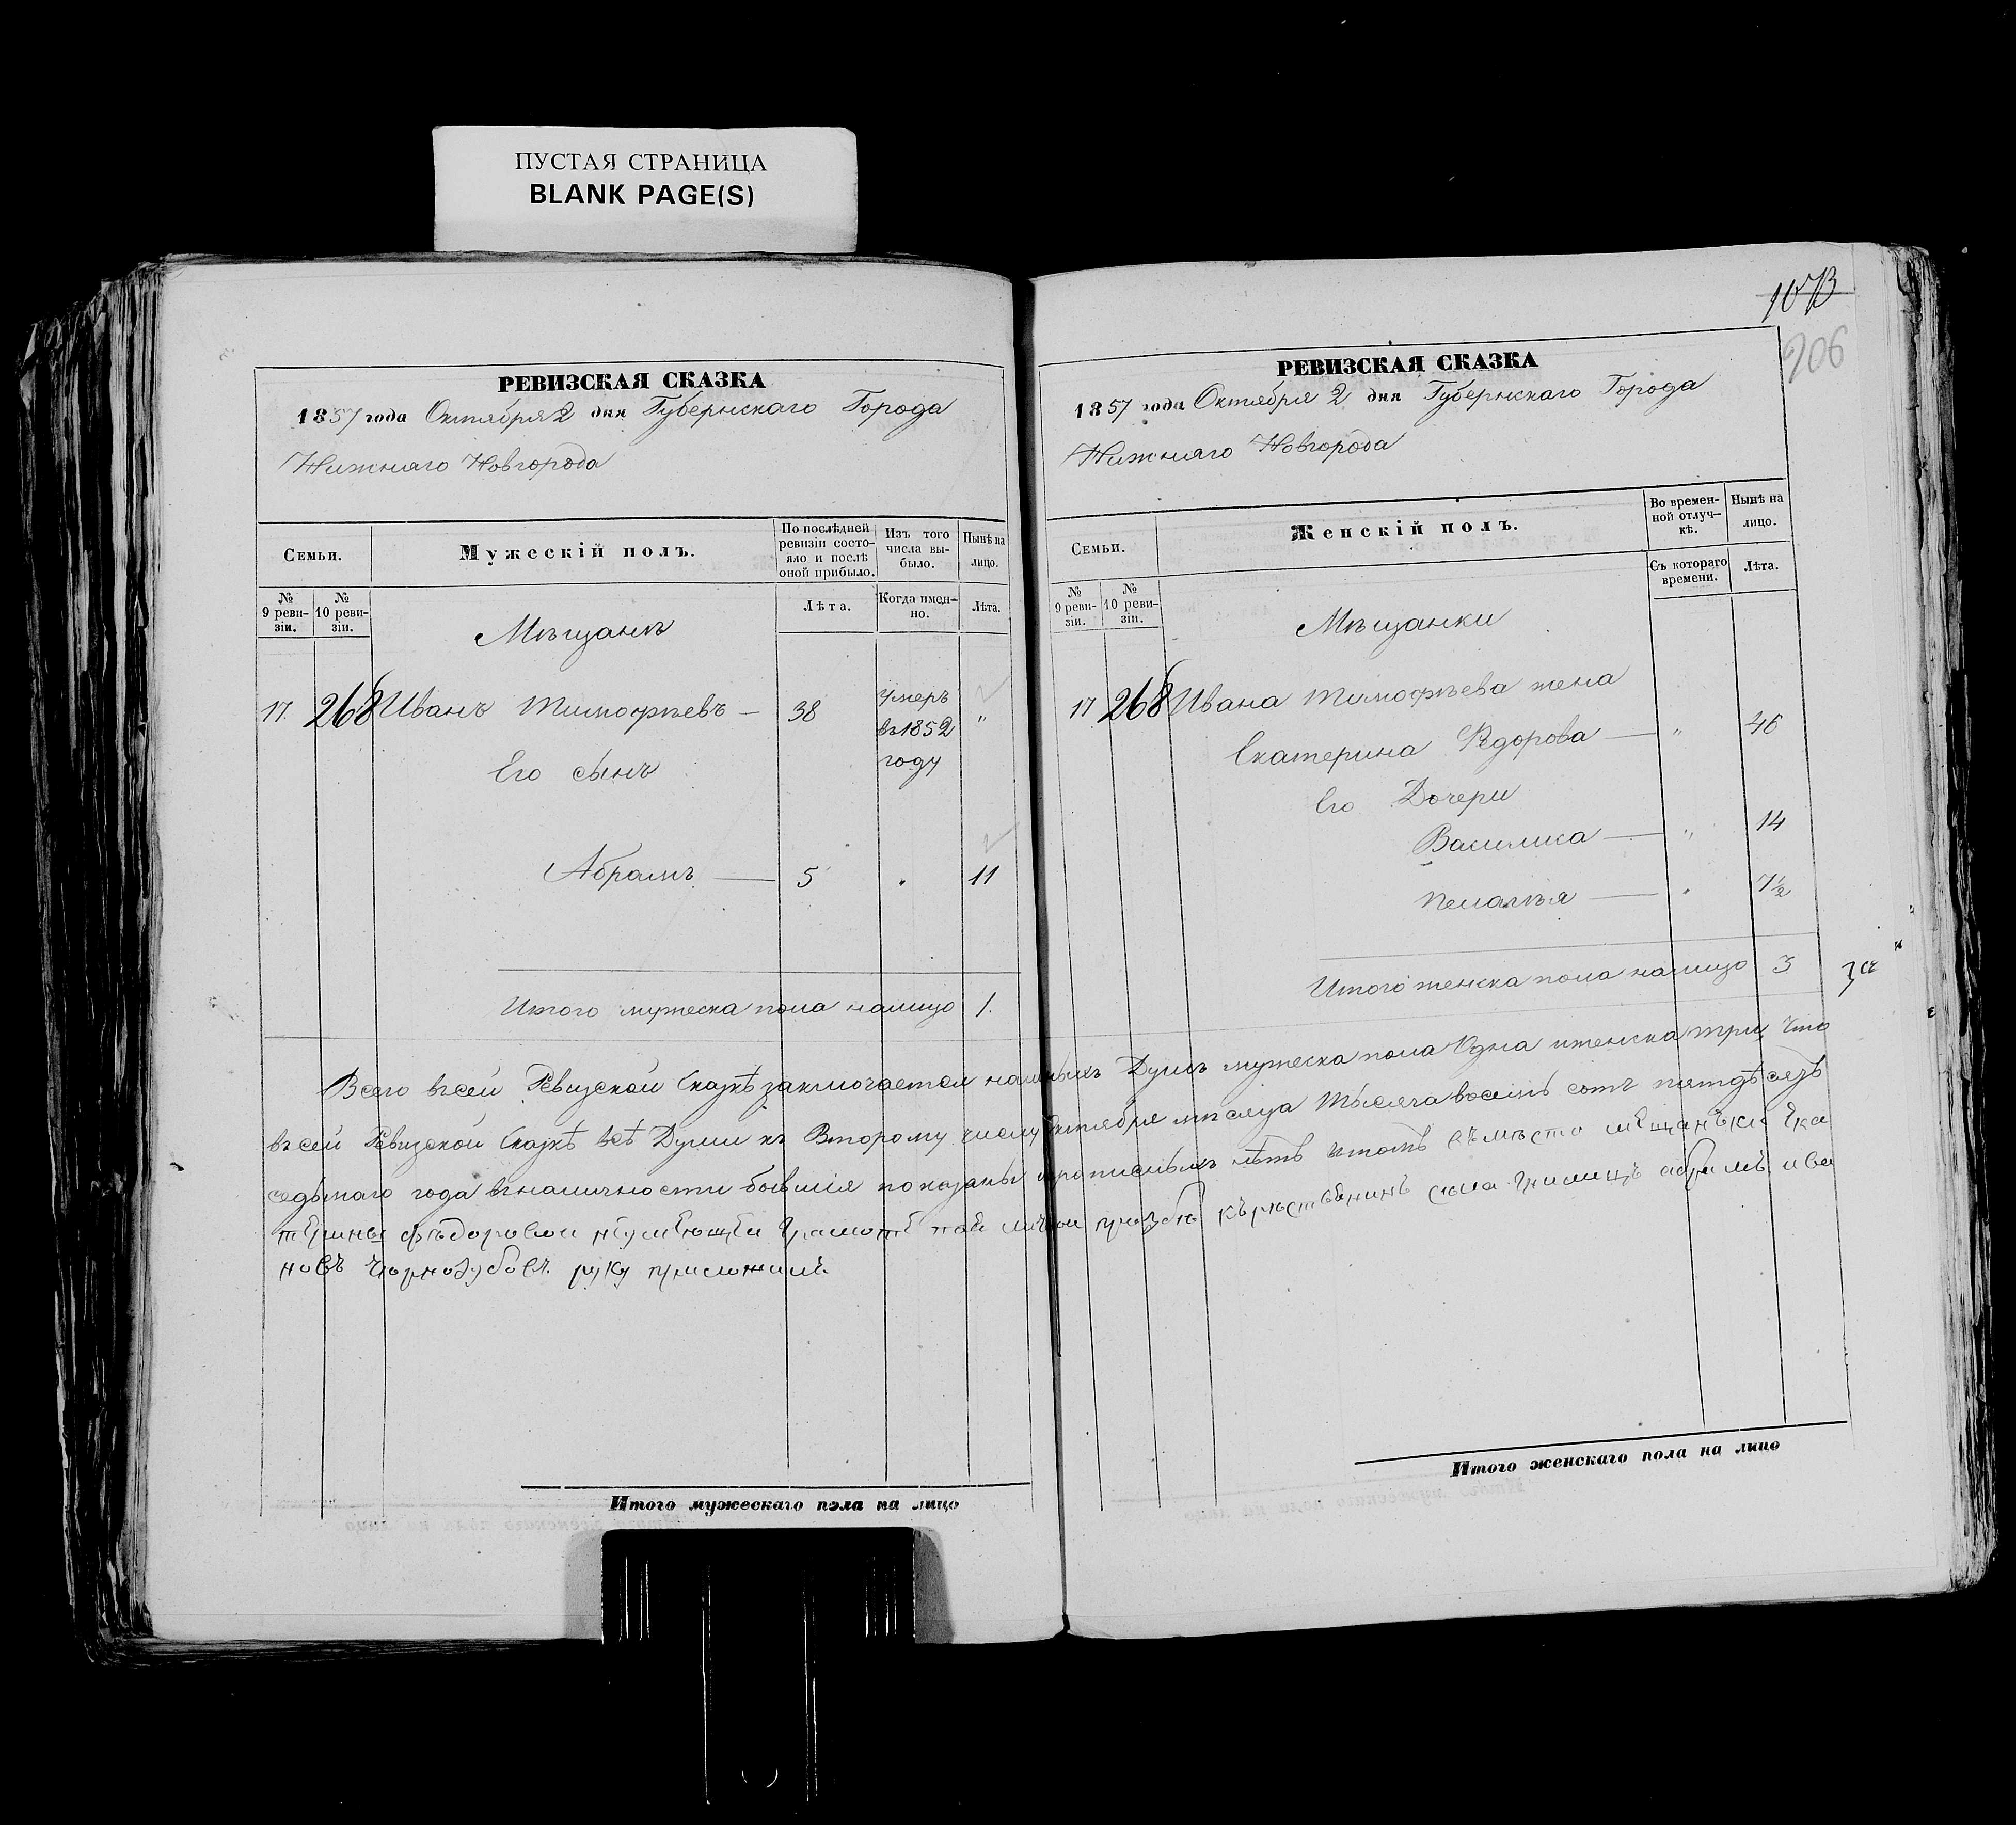 ПУСТАЯ СТРАНИЦА
BLANK PAGE(S)
РЕВИЗСКАЯ СКАЗКА
1857 года Октября 2 дня Губернскаго Города
Нижняго Новгорода
Семьи.
Мужескій полъ.
По послѣдней
ревизіи состо-
яло и послѣ
оной прибыло.
Изъ того
числа вы-
было.
Нынѣ на
лицо.
№
9 реви-
зіи.
№
10 реви-
зіи.
Лѣта.
Когда имен-
но.
Лѣта.
Мѣщанъ
17. 268 Иванъ Тимофѣевъ — 38 умеръ "
въ 1852
году
Его сынъ
Абрамъ — 5 . 11
Итого мужеска пола налицо 1.
1073
206
РЕВИЗСКАЯ СКАЗКА
1857 года Октября 2 дня Губернскаго Города
Нижняго Новгорода
Семьи.
Женскій полъ.
Во времен-
ной отлуч-
кѣ.
Нынѣ на
лицо.
№
9 реви-
зіи.
№
10 реви-
зіи.
Съ котораго
времени.
Лѣта.
Мѣщанки
17 268 Ивана Тимофѣева жена
Екатерина Ѳедорова — " 46
Его Дочери
Василиса — " 14
Пелагѣя — " 7½
Итого женска пола налицо 3
Всего въ сей Ревизской Сказкѣ заключается наличныхъ Душъ мужеска пола Одна и женска три, Что
въ сей Ревизской Сказкѣ всѣ Души къ Второму числу Октября мѣсяца Тысяча восемь сотъ пятдѣсядъ
седьмаго года въ наличности бывшія показаны и прописныхъ нѣтъ втомъ въмѣсто мѣщанъки Ека
терины фѣдоровои нѣумѣющѣи грамотѣ поѣ личнои прозбѣ абрамъ ива
новъ Чорнозубовъ руку приложилъ
Итого мужескаго пола на лицо
Итого женскаго пола на лицо